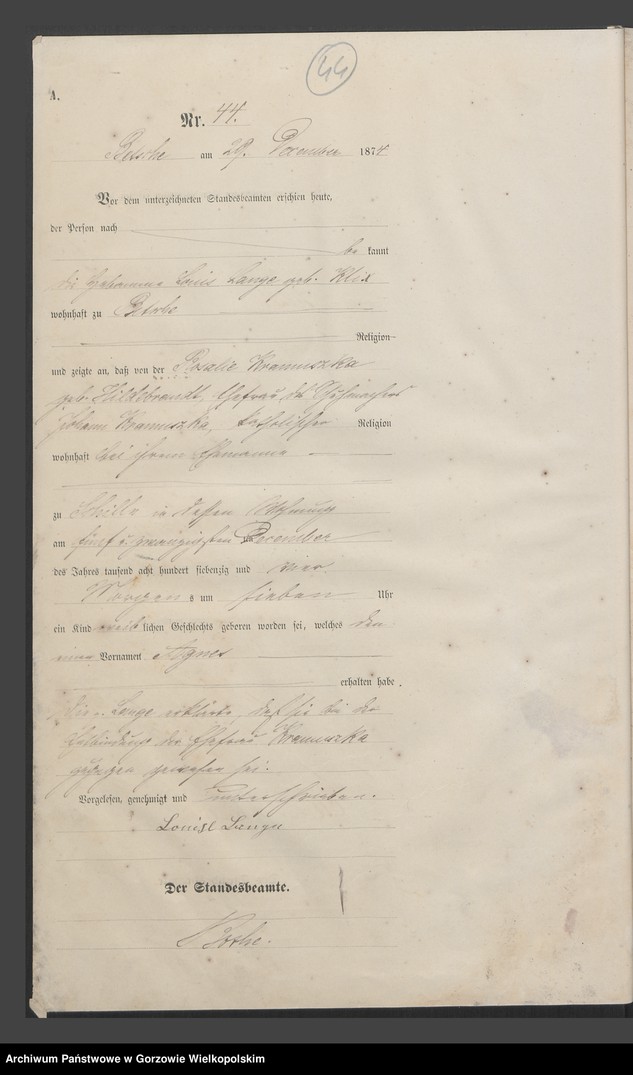 44
A.
Nr. 44.
Betsche am 29. December 1874
Vor dem unterzeichneten Standesbeamten erschien heute,
der Person nach
be kannt
die Hebamme Louis Lange geb. Klix
wohnhaft zu Betsche
Religion
und zeigte an, daß von der Rosalie Kramuszka
geb. Hildebrandt, Ehefrau des
Johann Kramuszka, katholischer Religion
wohnhaft bei ihrem Ehemanne
zu in dessen Wohnung
am fünf u. zwanzigsten December
des Jahres tausend acht hundert siebenzig und vier
Morgen s um sieben Uhr
ein Kind weib lichen Geschlechts geboren worden sei, welches den
Vornamen Agnes
erhalten habe.
Die Lange erklärte, daß sie bei der
Entbindung der Ehefrau Kramuszka
zugegen gewesen sei.
Vorgelesen, genehmigt und unterschrieben.
Louise Lange
Der Standesbeamte.
Archiwum Państwowe w Gorzowie Wielkopolskim